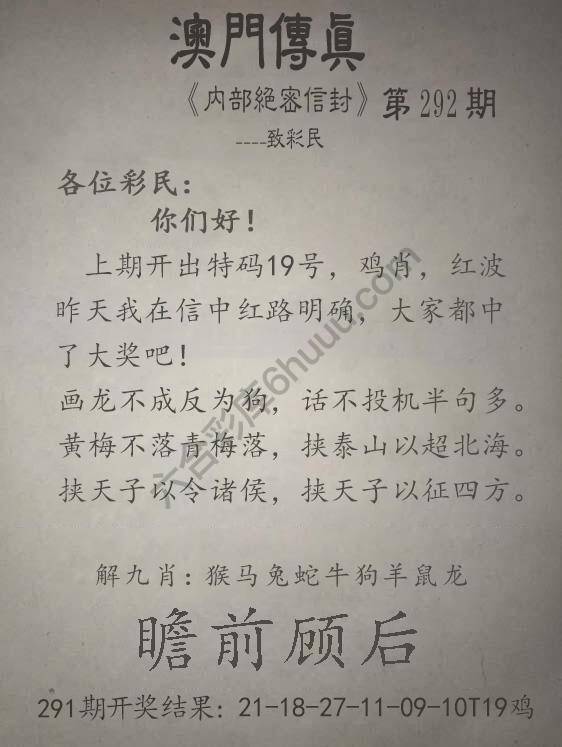 澳門傳真
《内部絕密信封》第292期
----致彩民
各位彩民：
你们好！
上期开出特码19号，鸡肖，红波
昨天我在信中红路明确，大家都中
了大奖吧！
画龙不成反为狗，话不投机半句多。
黄梅不落青梅落，挟泰山以超北海。
挟天子以令诸侯，挟天子以征四方。
六合彩库6huuu.com
解九肖：猴马兔蛇牛狗羊鼠龙
瞻前顾后
291期开奖结果：21-18-27-11-09-10T19鸡